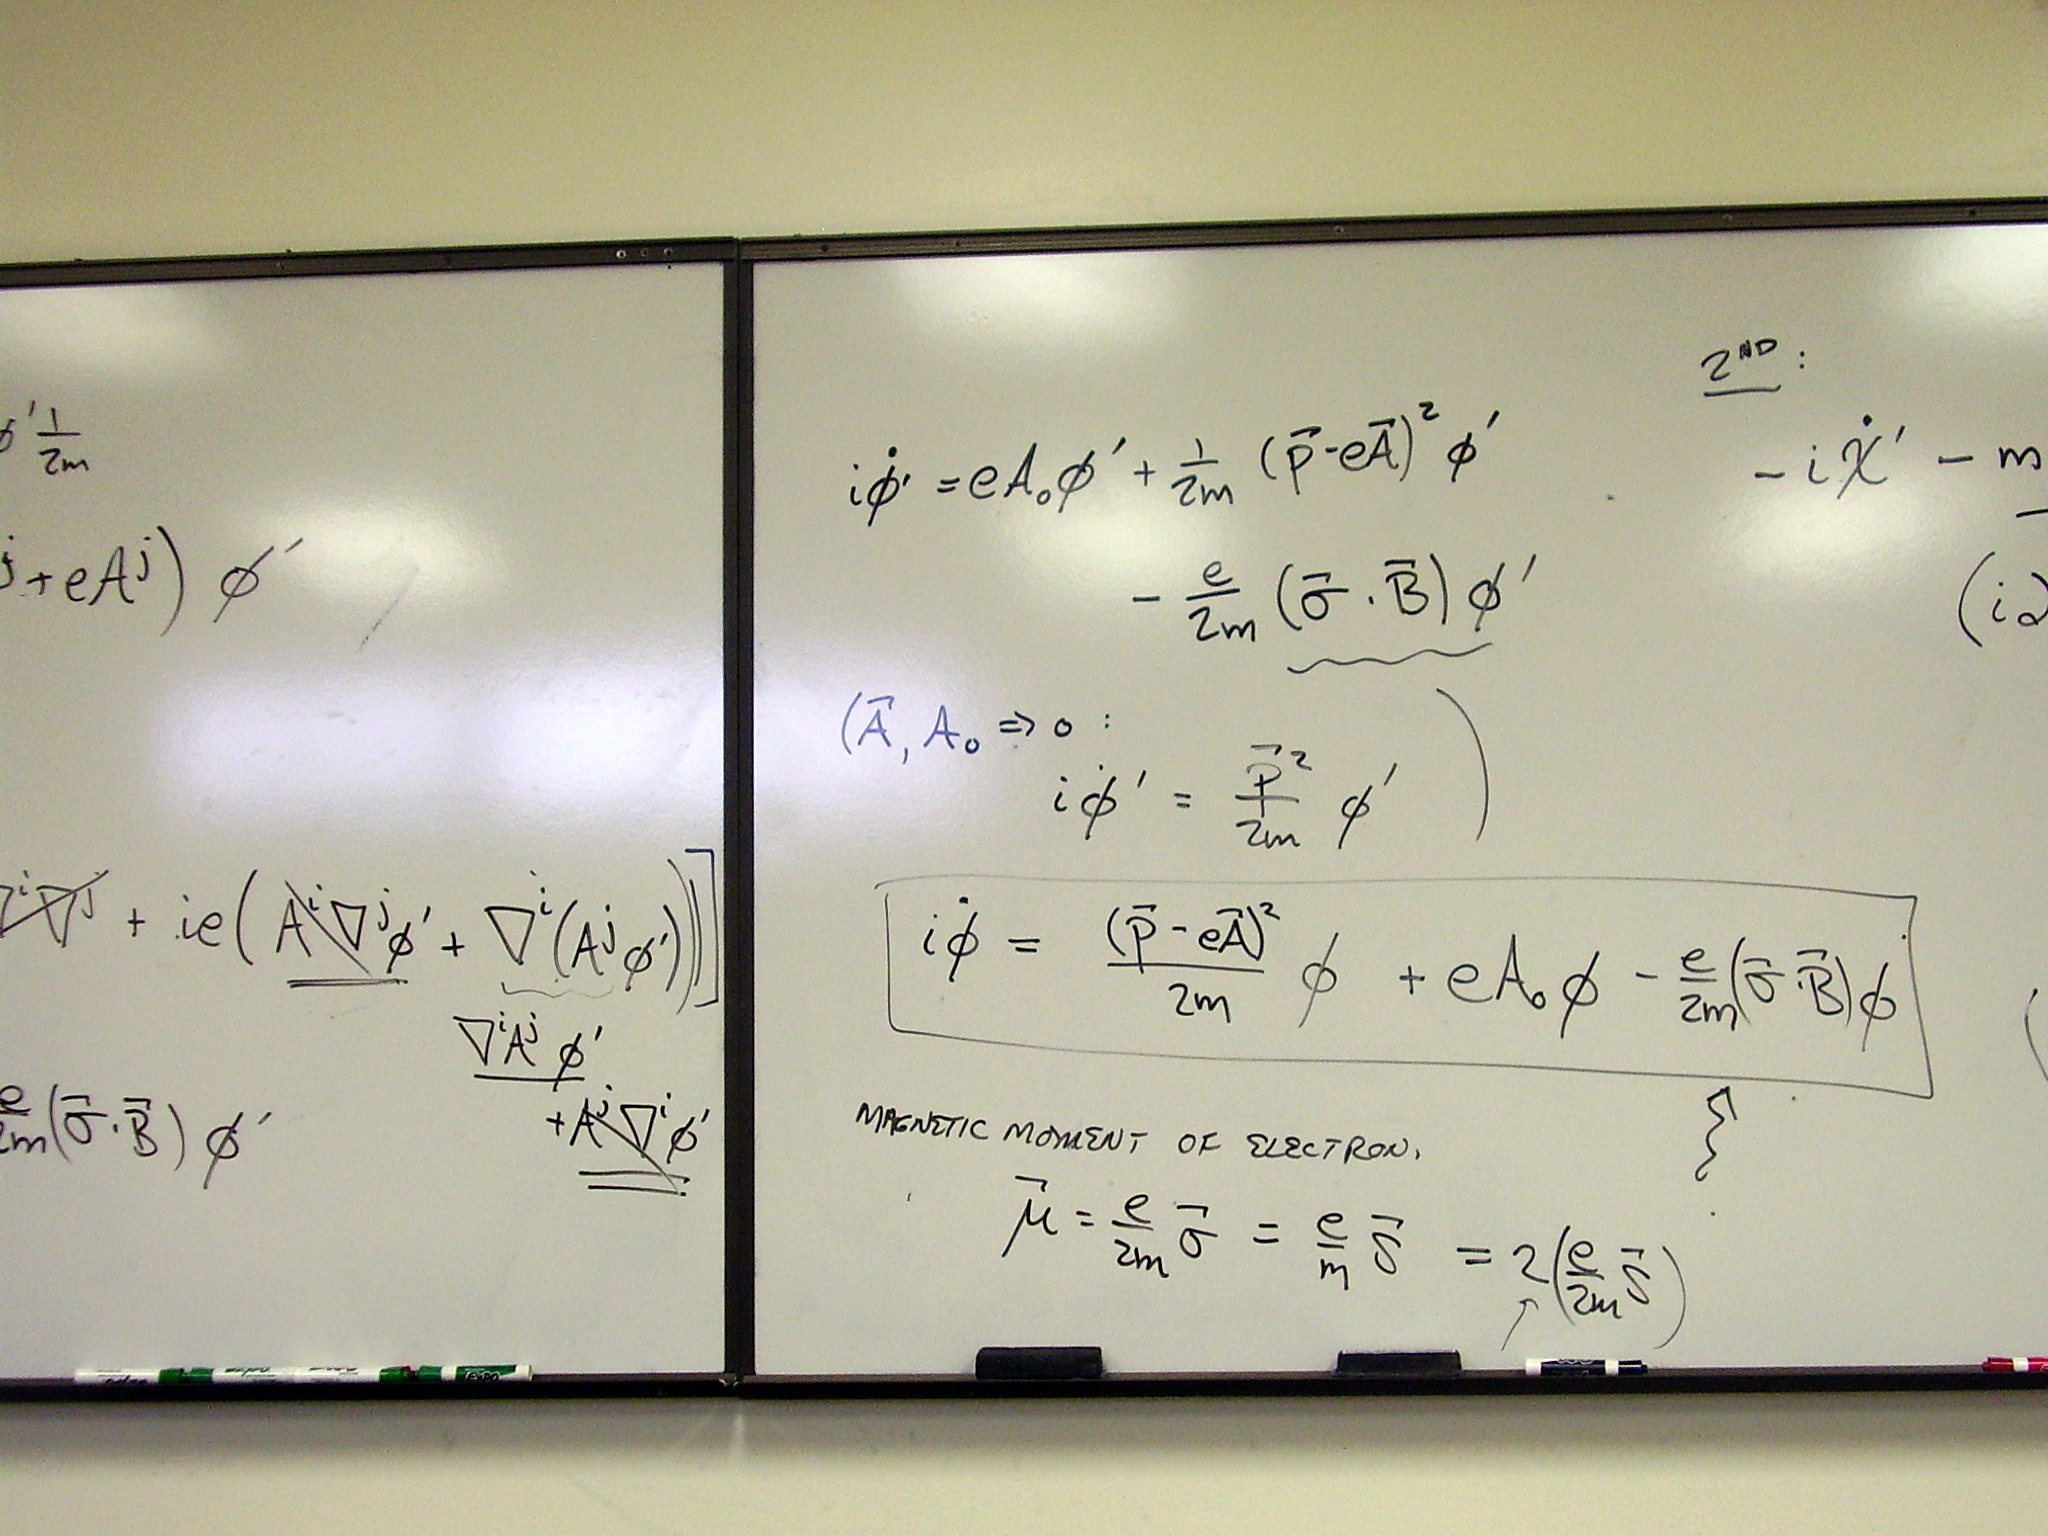 φ' 1/2m
j + eA^j) φ'
∇^i∇^j + ie(A^i∇^jφ' + ∇^i(A^jφ'))]
∇^iA^j φ'
+A^j∇^iφ'
e/2m (σ⃗·B⃗) φ'
iφ̇' = eA₀φ' + 1/2m (p⃗-eA⃗)² φ'
- e/2m (σ⃗·B⃗) φ'
(A⃗, A₀ ⇒ 0 :
iφ̇' = p⃗²/2m φ' )
iφ̇ = (p⃗-eA⃗)²/2m φ + eA₀φ - e/2m (σ⃗·B⃗)φ
MAGNETIC MOMENT OF ELECTRON.
μ⃗ = e/2m σ⃗ = e/m S⃗ = 2(e/2m S⃗)
2ND :
-iχ̇' - m
(i
EXPO